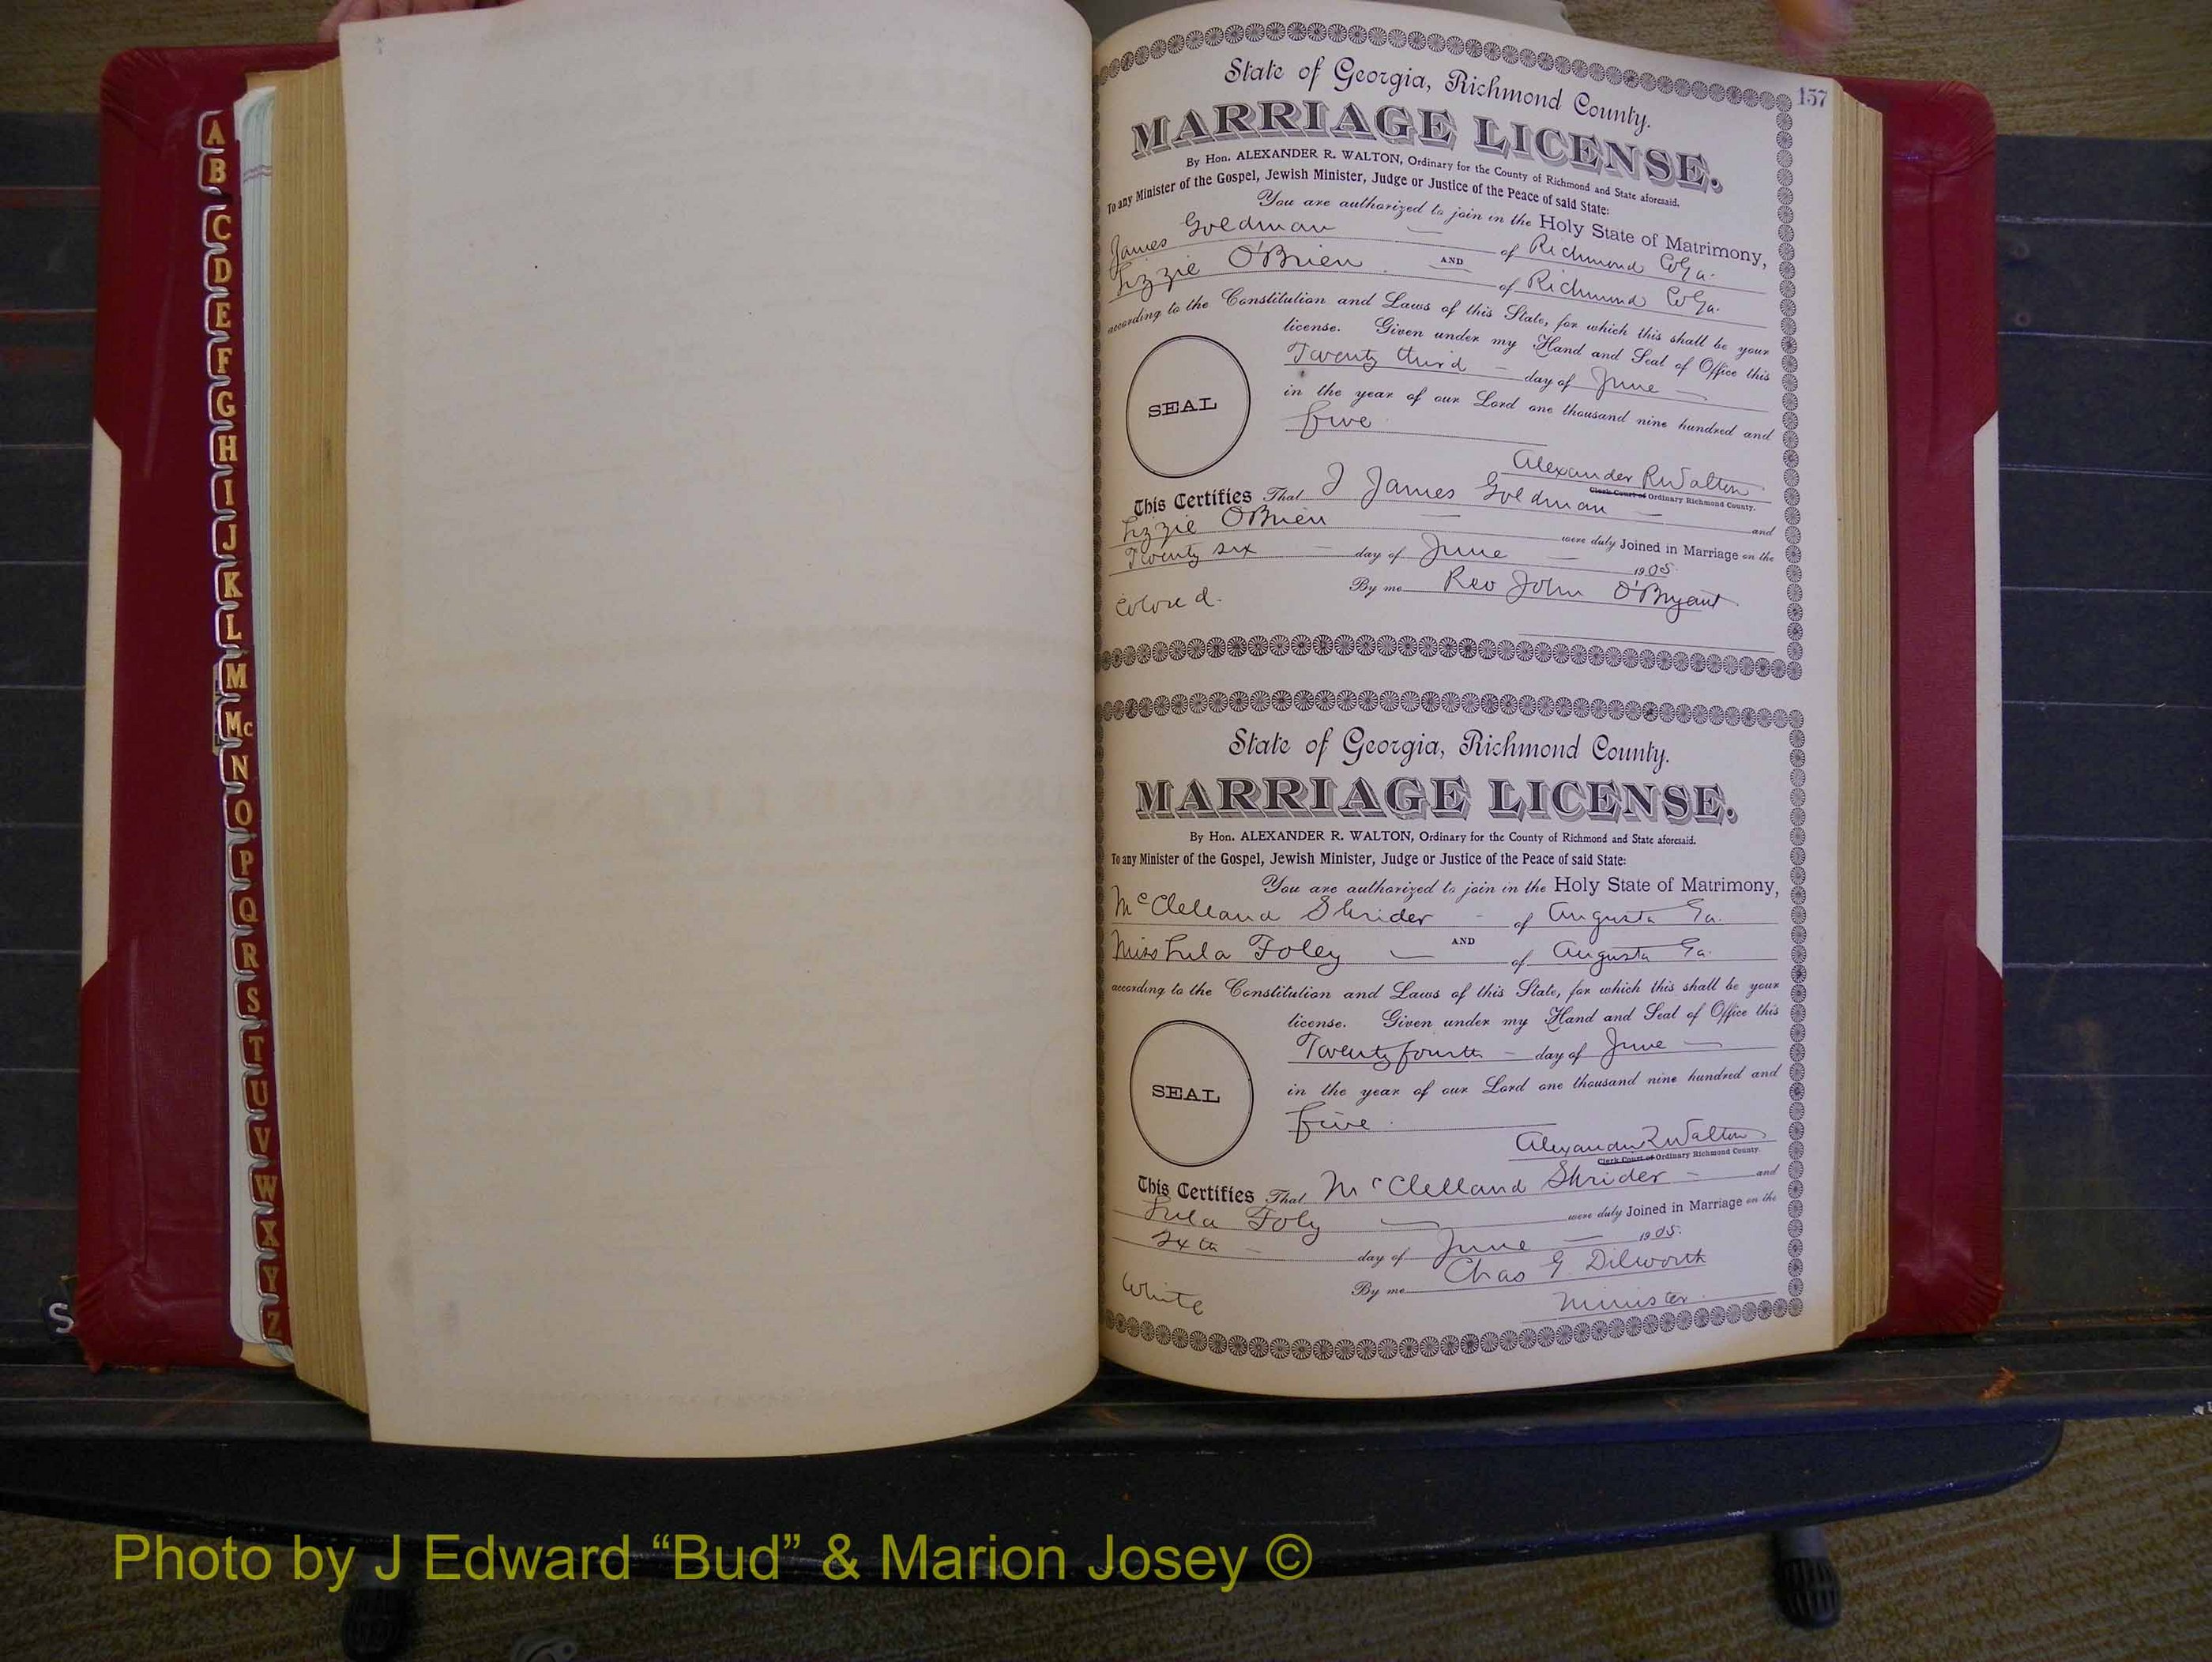 A
B
C
D
E
F
G
H
I
J
K
L
M
Mc
N
O
P
Q
R
S
T
U
V
W
X
Y
Z
S
157
State of Georgia, Richmond County.
MARRIAGE LICENSE.
By Hon. ALEXANDER R. WALTON, Ordinary for the County of Richmond and State aforesaid.
To any Minister of the Gospel, Jewish Minister, Judge or Justice of the Peace of said State:
You are authorized to join in the Holy State of Matrimony,
James Goldman of Richmond Co Ga.
AND
Lizzie O'Brien of Richmond Co Ga.
according to the Constitution and Laws of this State, for which this shall be your
license. Given under my Hand and Seal of Office this
Twenty third day of June
in the year of our Lord one thousand nine hundred and
five
SEAL
Alexander R Walton
Clerk Court of Ordinary Richmond County.
This Certifies That I James Goldman and
Lizzie O'Brien were duly Joined in Marriage on the
Twenty six day of June 1905.
By me Rev John O'Bryant
Colored.
State of Georgia, Richmond County.
MARRIAGE LICENSE.
By Hon. ALEXANDER R. WALTON, Ordinary for the County of Richmond and State aforesaid.
To any Minister of the Gospel, Jewish Minister, Judge or Justice of the Peace of said State:
You are authorized to join in the Holy State of Matrimony,
McClelland Shrider of Augusta Ga.
AND
Miss Lula Foley of Augusta Ga.
according to the Constitution and Laws of this State, for which this shall be your
license. Given under my Hand and Seal of Office this
Twenty fourth day of June
in the year of our Lord one thousand nine hundred and
five
SEAL
Alexander R Walton
Clerk Court of Ordinary Richmond County.
This Certifies That McClelland Shrider and
Lula Foly were duly Joined in Marriage on the
day of June 1905.
By me Chas G Dilworth
Minister
White
Photo by J Edward “Bud” & Marion Josey ©